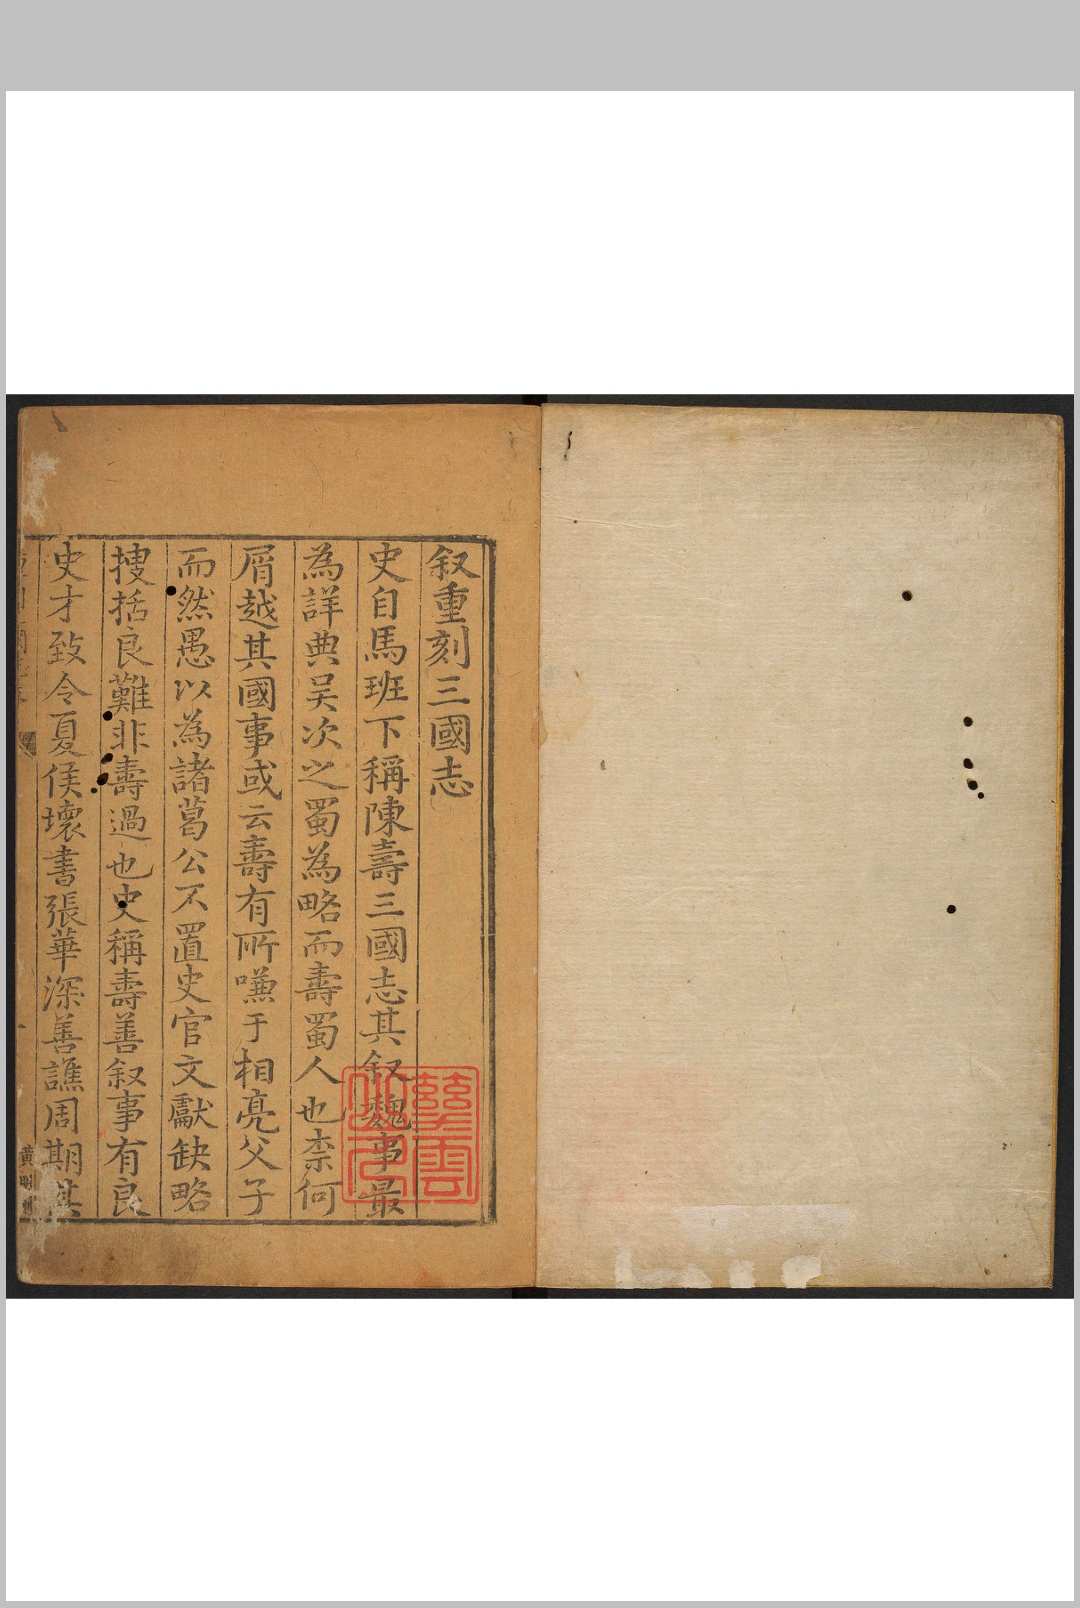 叙重刻三國志
史自馬班下稱陳壽三國志其叙魏事最
為詳典吴次之蜀為略而壽蜀人也柰何
屑越其國事或云壽有所嗛于相亮父子
而然愚以為諸葛公不置史官文獻缺略
捜括良難非壽過也史稱壽善叙事有良
史才致令夏侯壞書張華深善譙周期其